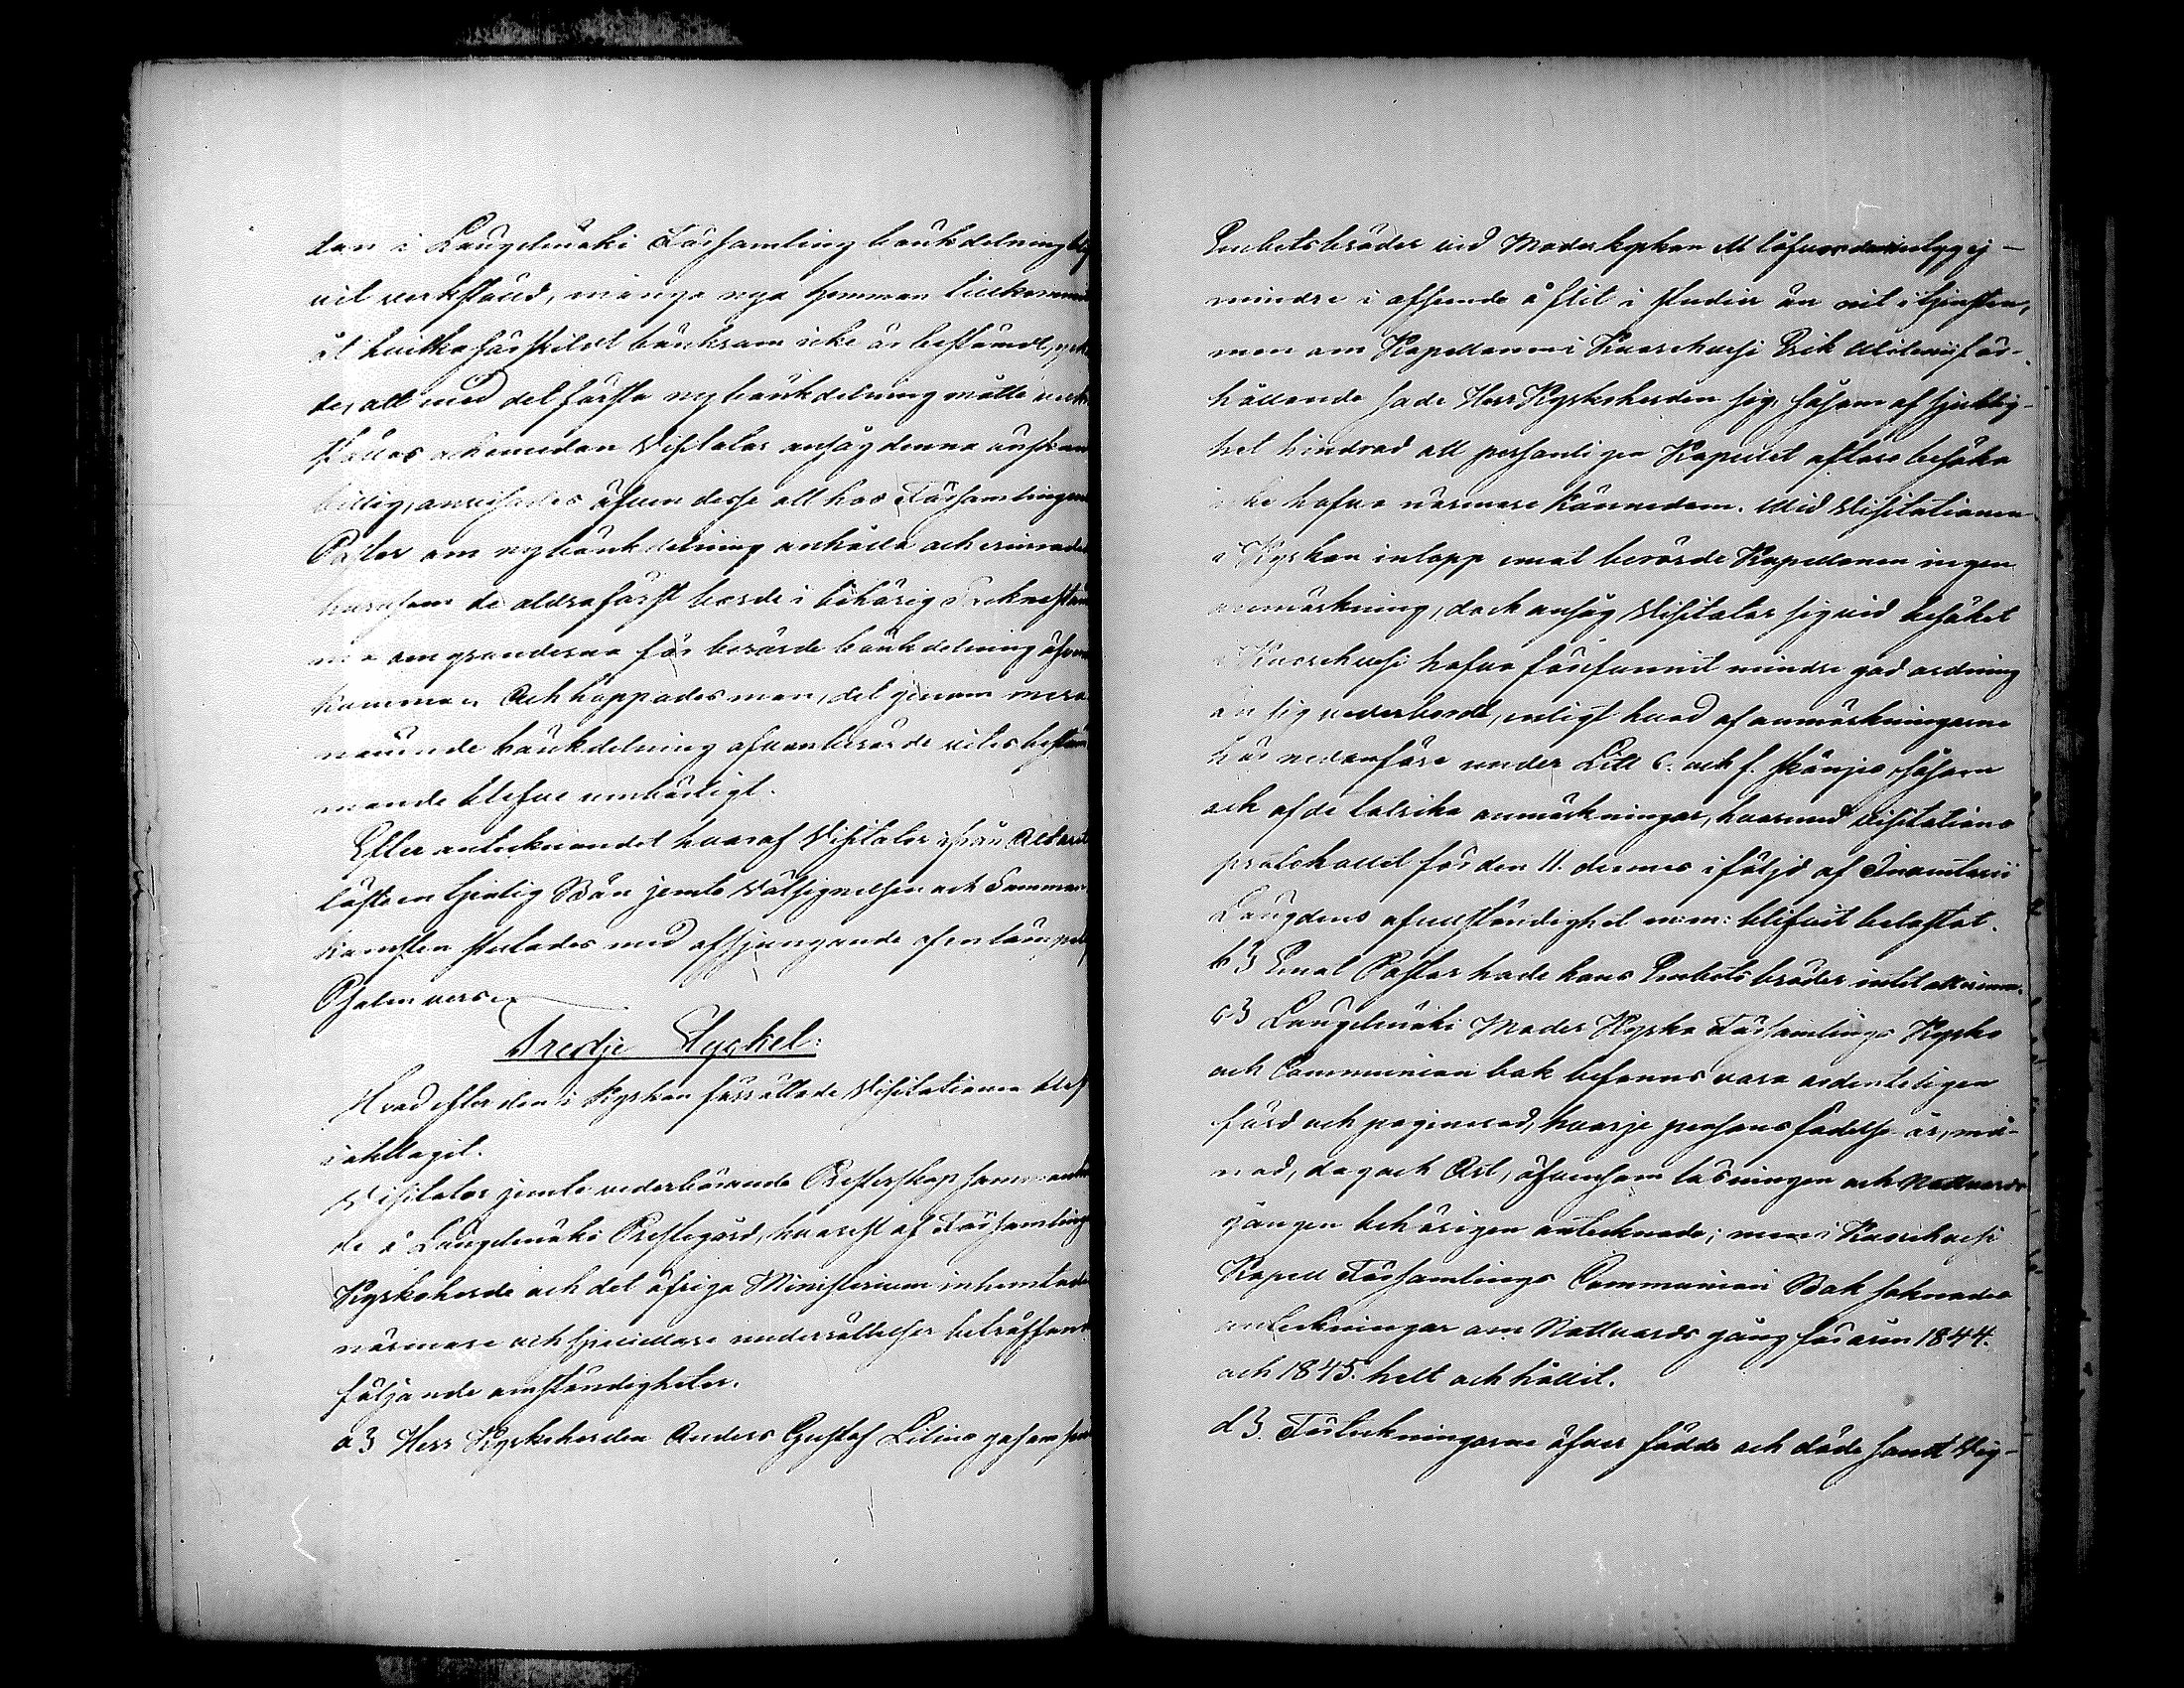 dan i Längelmäki Församling bänkdelning blif
vit verkstäld, många nya hemman tillkommit
åt hvilka särskildt bänkrum icke är bestämdt,
de, att med det första ny bänkdelning måtte verk
ställas och emedan Visitator ansåg denna anhållan
billig, anvisades äfven desse att hos Församlingens
Pastor om ny bänkdelning anhålla och erinrades
huru som de aldraförst borde i behörig Socknestäm
ma om grunderna för berörde bänkdelning öfverens
komma. Och hoppades man, det genom mera
nämnde bänkdelning ofvanberörde vites bestäm
mande blefve umbärligt.
Efter antecknandet hvaraf Visitator ifrån Altaret
läste en tjenlig Bön jemte Välsignelsen och Samman-
komsten slutades med afsjungande af en lämpelig
Psalmvers.
Tredje Stycket:
Hvad efter den i Kyrkan förrättade Visitationen blef
iakttagit.
Visitator jemte vederbörande Presterskap samman
de å Längelmäki Prestegård, hvarest af Församlings
Kyrkoherde och det öfriga Ministerium inhemtades
närmare och speciellare underrättelser beträffande
följande omständigheter.
a) Herr Kyrkoherden Anders Gustaf Lilius gaf om sina
Embetsbröder vid Moderkyrkan ett loforda intyg ej
mindre i afseende å flit i studier än nit i tjensten,
men om Kapellanen i Kuorehvesi Erik för-
hållande sade Herr Kyrkoherden sig, såsom af sjuklig-
het hindrad att personligen Kapellet oftare besöka
icke hafva närmare kännedom. Vid Visitationen
i Kyrkan inlopp emot berörde Kapellanen ingen
anmärkning, dock ansåg Visitator sig vid besöket
i Kuorehvesi hafva förefunnit mindre god ordning
än sig vederbordt, enligt hvad af anmärkningarne
här nedanföre under Litt c. och f. skönjes, såsom
och af de talrika anmärkningar, hvarmed Visitations
protokollet för den 11. dennes i följd af Inventarii
Längdens ofullständighet m: m: blifvit belastat.
b) Emot Pastor hade hans Embetsbröder intet att erinra.
c) Längelmäki Moder Kyrko Församlings Kyrko
och Communion bok befanns vara ordenteligen
förd och paginerad, hvarje persons födelse år, må-
nad, dag och Ort, äfvensom läsningen och Nattvards
gången behörigen antecknade; men i Kuorehvesi
Kapell Församlings Communion Bok saknades
anteckningar om Nattvards gång för åren 1844.
och 1845. helt och hållit.
d). Förteckningarne öfver födde och döde samt Vig-